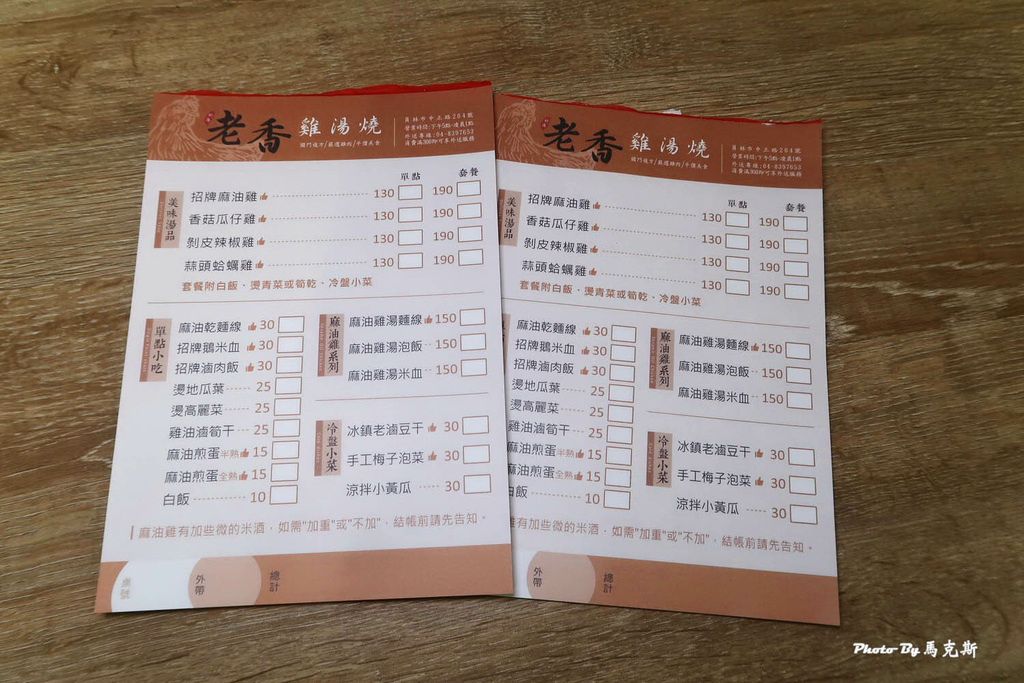 老香 雞湯燒
獨門複方/嚴選雞肉/平價美食
員林市中正路204號
營業時間:下午5點-凌晨1點
外送專線:04-8397653
消費滿300即可享外送服務
單點 套餐
美味湯品
招牌麻油雞 130 190
香菇瓜仔雞 130 190
剝皮辣椒雞 130 190
蒜頭蛤蠣雞 130 190
套餐附白飯、燙青菜或筍乾、冷盤小菜
單點小吃
麻油乾麵線 30
招牌鵝米血 30
招牌滷肉飯 30
燙地瓜葉 25
燙高麗菜 25
雞油滷筍干 25
麻油煎蛋半熟 15
麻油煎蛋全熟 15
白飯 10
麻油雞系列
麻油雞湯麵線 150
麻油雞湯泡飯 150
麻油雞湯米血 150
冷盤小菜
冰鎮老滷豆干 30
手工梅子泡菜 30
涼拌小黃瓜 30
麻油雞有加些微的米酒，如需"加重"或"不加"，結帳前請先告知。
桌號 外帶 總計
老香 雞湯燒
獨門複方/嚴選雞肉/平價美食
員林市中正路204號
營業時間:下午5點-凌晨1點
外送專線:04-8397653
消費滿300即可享外送服務
單點 套餐
美味湯品
招牌麻油雞 130 190
香菇瓜仔雞 130 190
剝皮辣椒雞 130 190
蒜頭蛤蠣雞 130 190
套餐附白飯、燙青菜或筍乾、冷盤小菜
麻油乾麵線 30
招牌鵝米血 30
招牌滷肉飯 30
燙地瓜葉 25
燙高麗菜 25
雞油滷筍干 25
麻油煎蛋半熟 15
麻油煎蛋全熟 15
白飯 10
麻油雞系列
麻油雞湯麵線 150
麻油雞湯泡飯 150
麻油雞湯米血 150
冷盤小菜
冰鎮老滷豆干 30
手工梅子泡菜 30
涼拌小黃瓜 30
雞有加些微的米酒，如需"加重"或"不加"，結帳前請先告知。
外帶 總計
Photo By 馬克斯